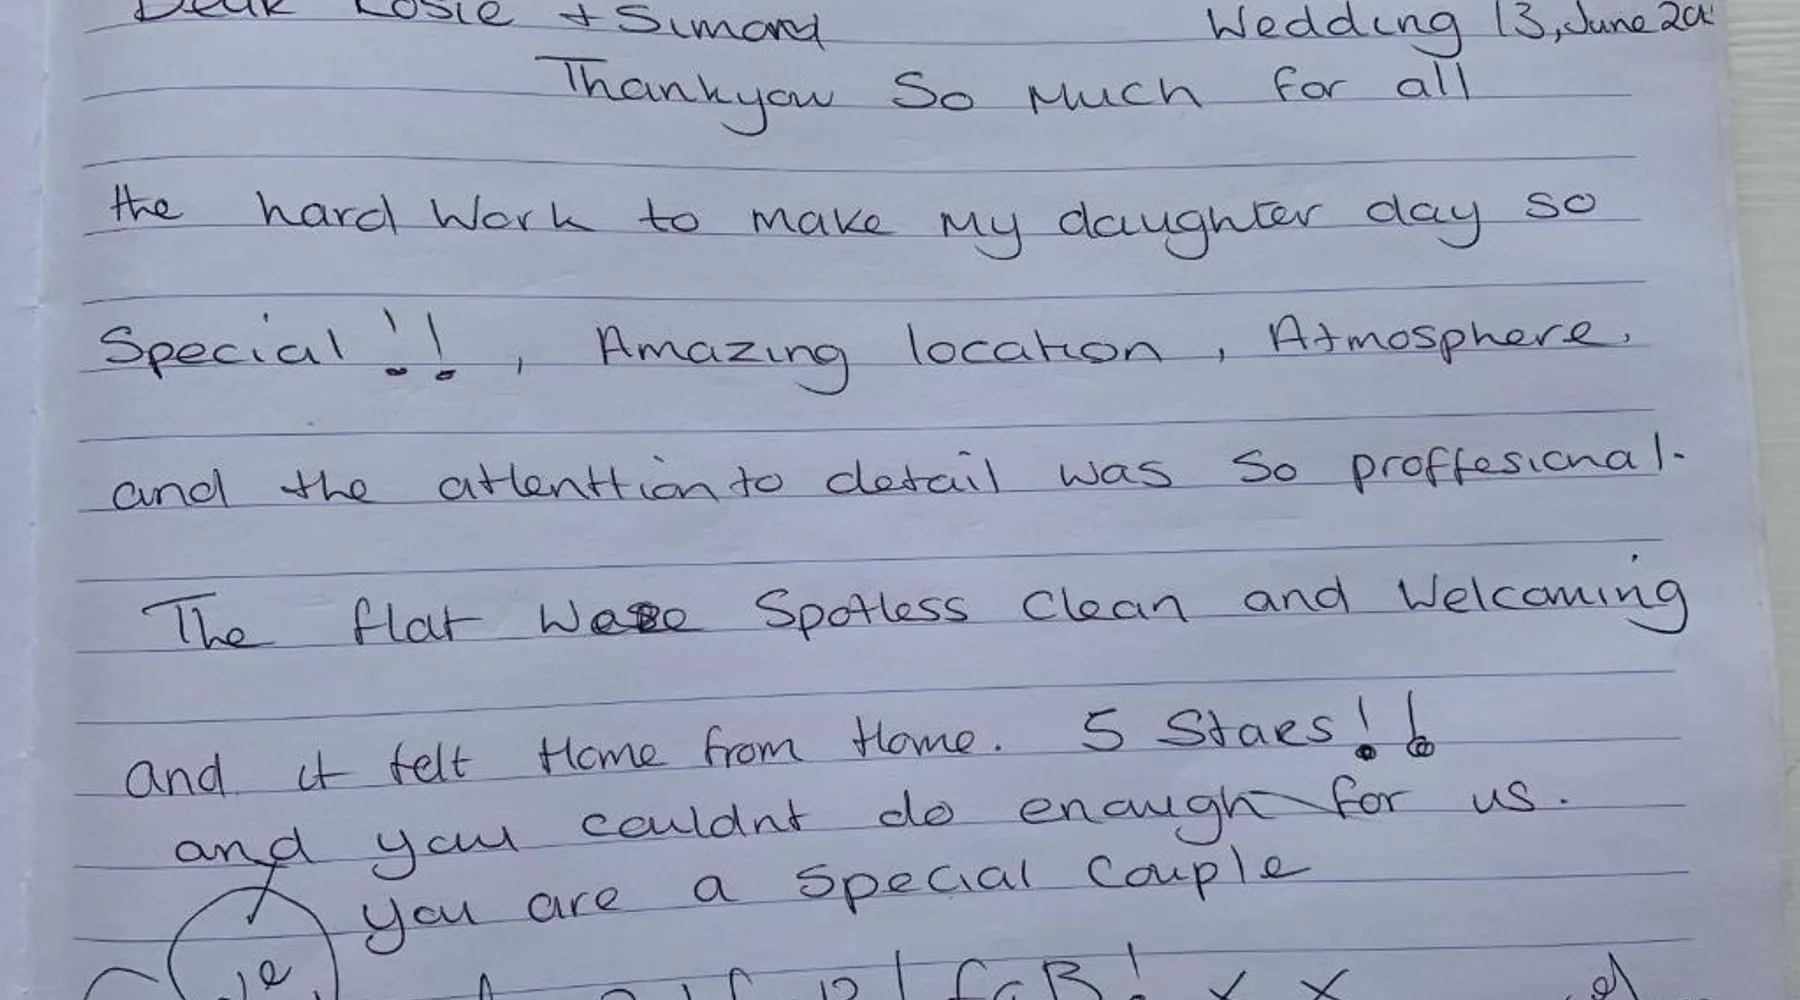 Dear Rosie + Simon Wedding 13, June
Thankyou So Much for all
the hard Work to make My daughter day so
Special!!, Amazing location, Atmosphere.
and the attenttion to detail was so proffesional.
The flat were Spotless Clean and Welcoming
and it felt Home from Home. 5 Stars!!
and you couldnt do enough for us.
you are a special couple